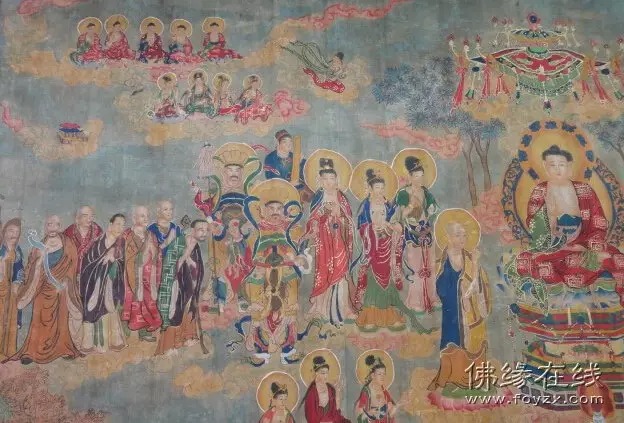 佛缘在线
www.foyzx.com